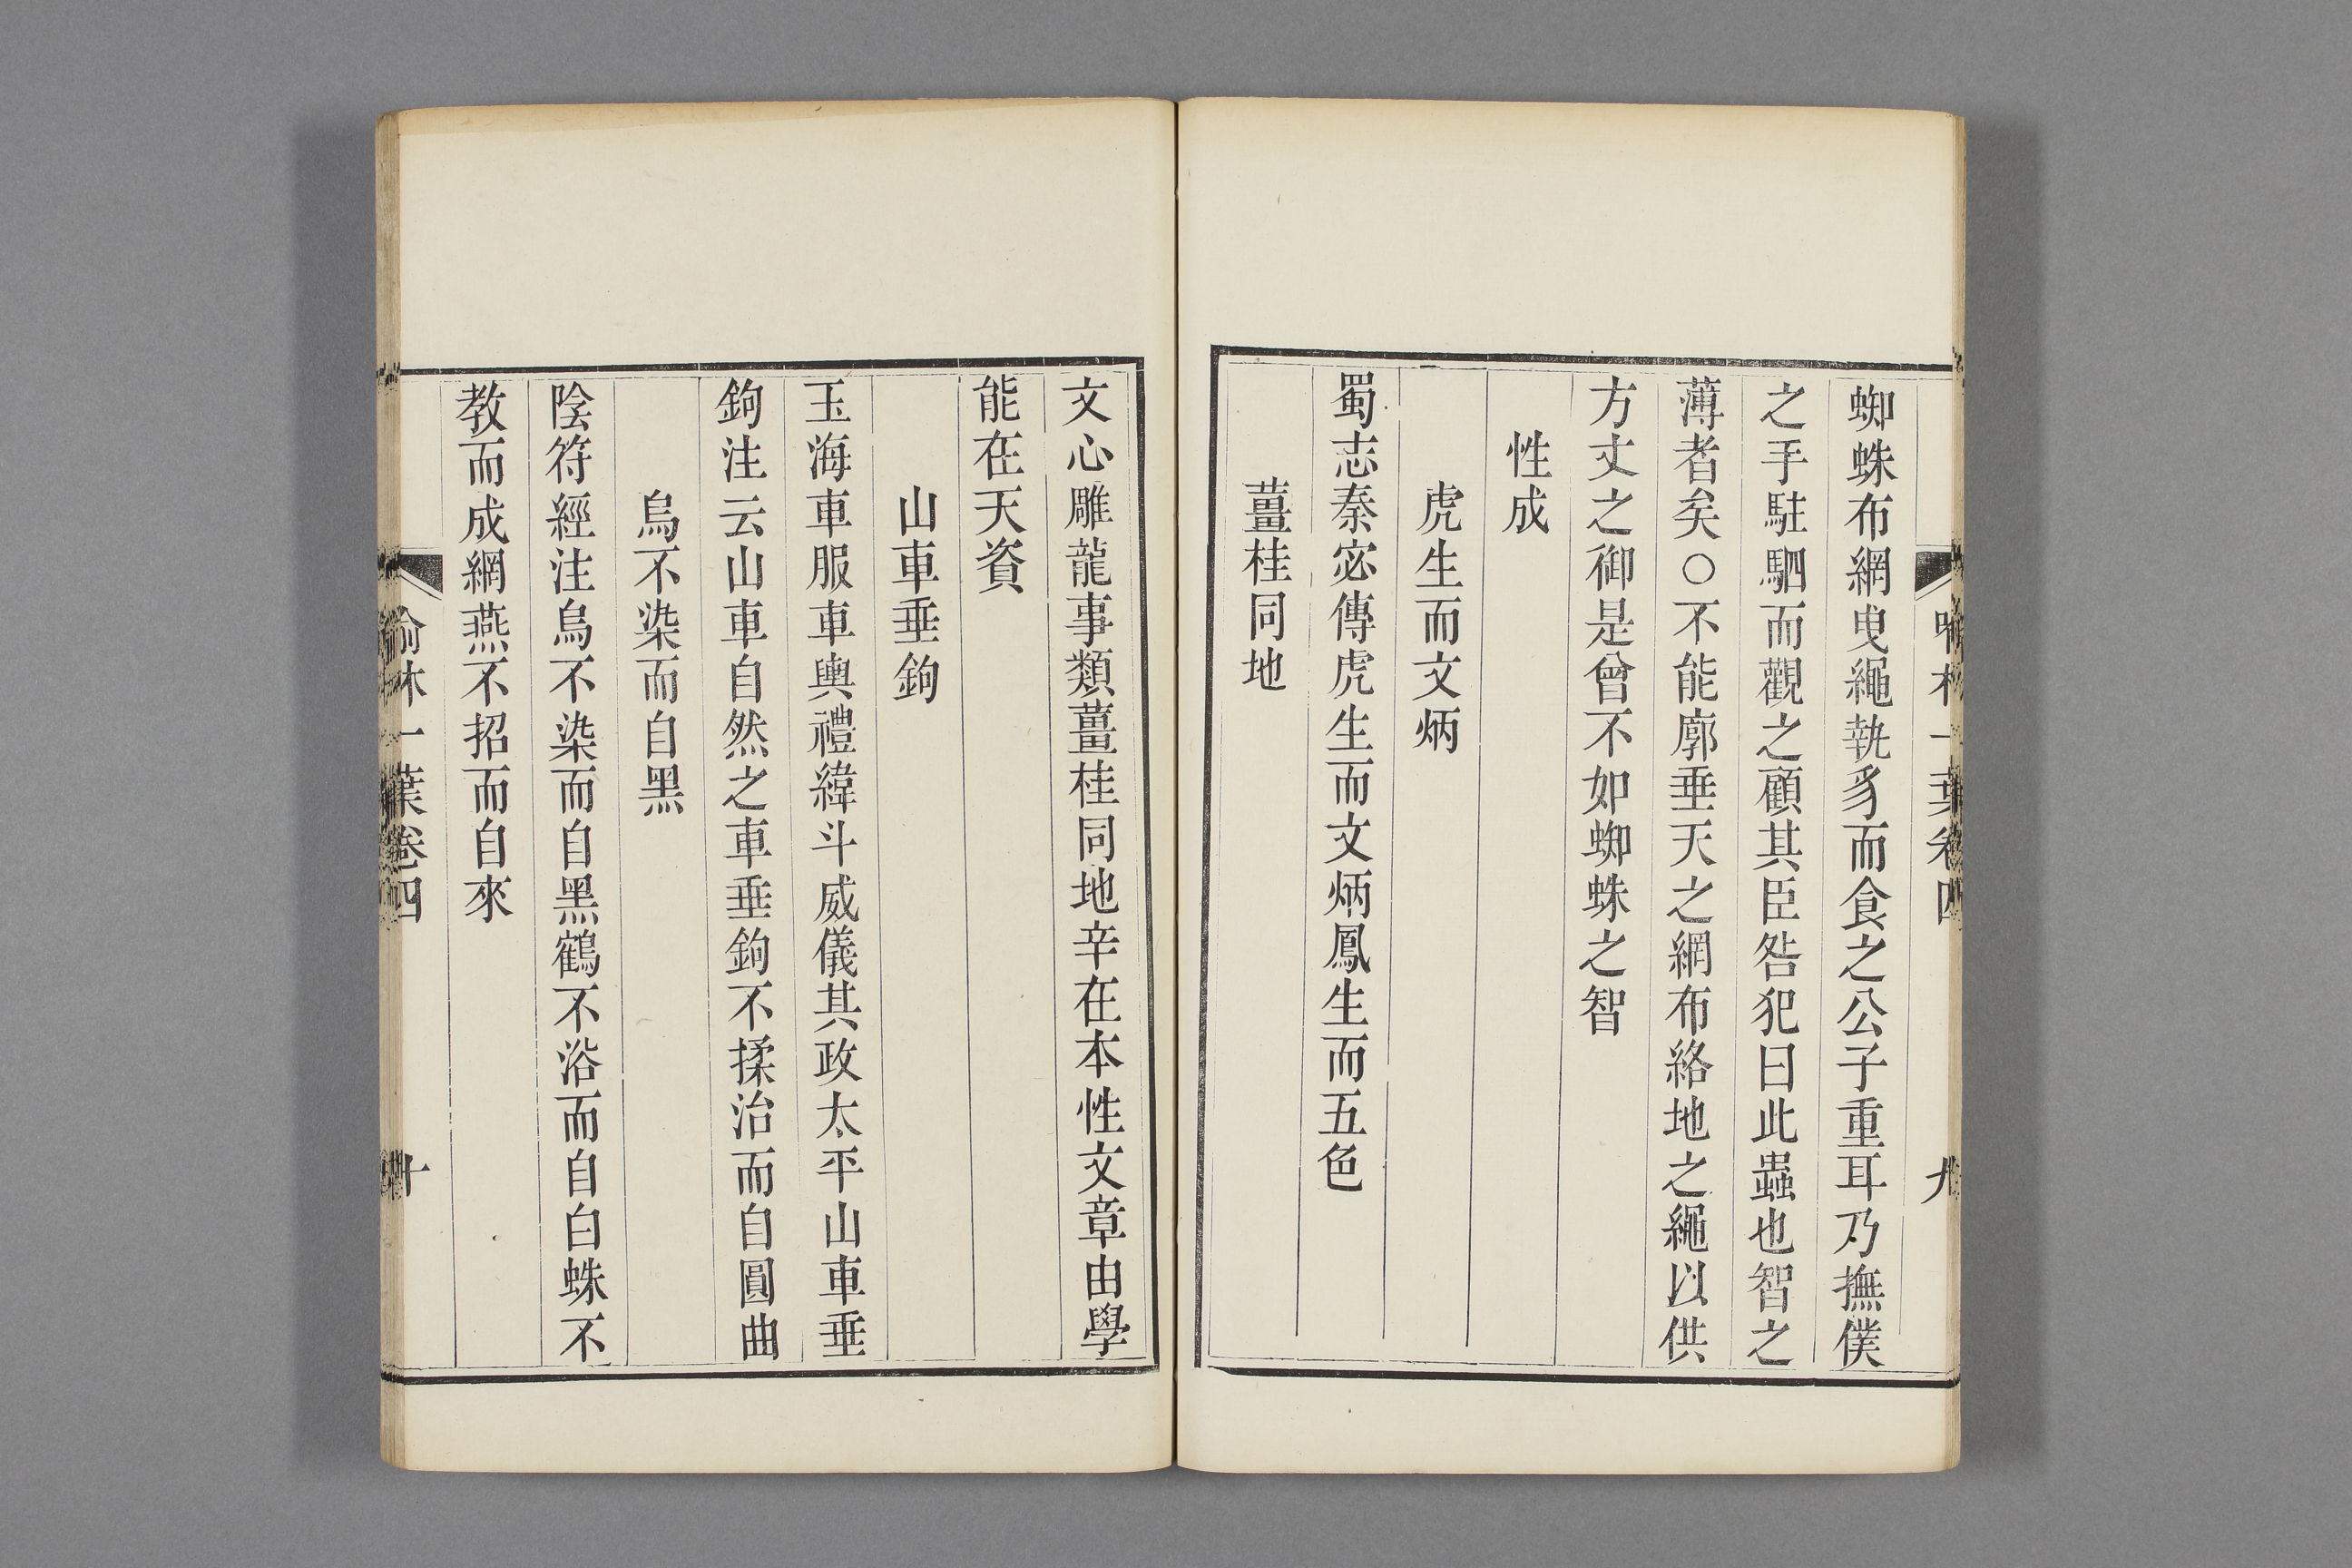 蜘蛛布網曳繩執豸而食之公子重耳乃撫僕
之手駐駟而觀之顧其臣咎犯曰此蟲也智之
薄者矣○不能廓垂天之網布絡地之繩以供
方丈之御是曾不如蜘蛛之智
性成
虎生而文炳
蜀志秦宓傳虎生而文炳鳳生而五色
薑桂同地
九
文心雕龍事類薑桂同地辛在本性文章由學
能在天資
山車垂鉤
玉海車服車輿禮緯斗威儀其政太平山車垂
鉤注云山車自然之車垂鉤不揉治而自圓曲
烏不染而自黑
陰符經注烏不染而自黑鶴不浴而自白蛛不
教而成網燕不招而自來
喻林一葉卷四
十